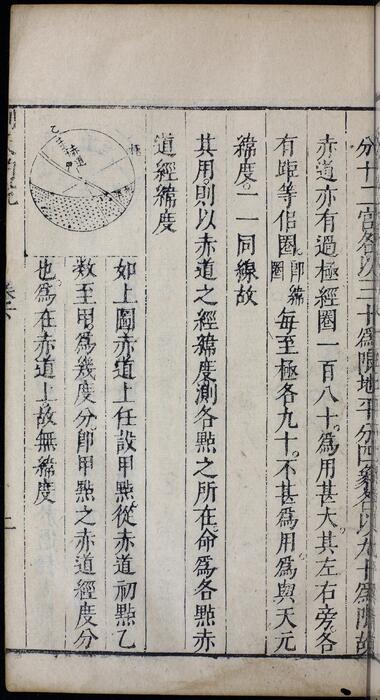 分十二宮各以三十爲限地平分四象各以九十爲限故
赤道亦有過極經圈一百八十。爲用甚大。其左右旁。各
有距等佀圈。卽緯圈每至極各九十。不甚爲用。爲與天元
緯度。一一同線故
其用。則以赤道之經緯度測各點之所在。命爲各點赤
道經緯度
如上圖赤道上任設甲點。從赤道初點乙
數至甲。爲幾度分。卽甲點之赤道經度分
也。爲在赤道上。故無緯度
乙
赤道
甲